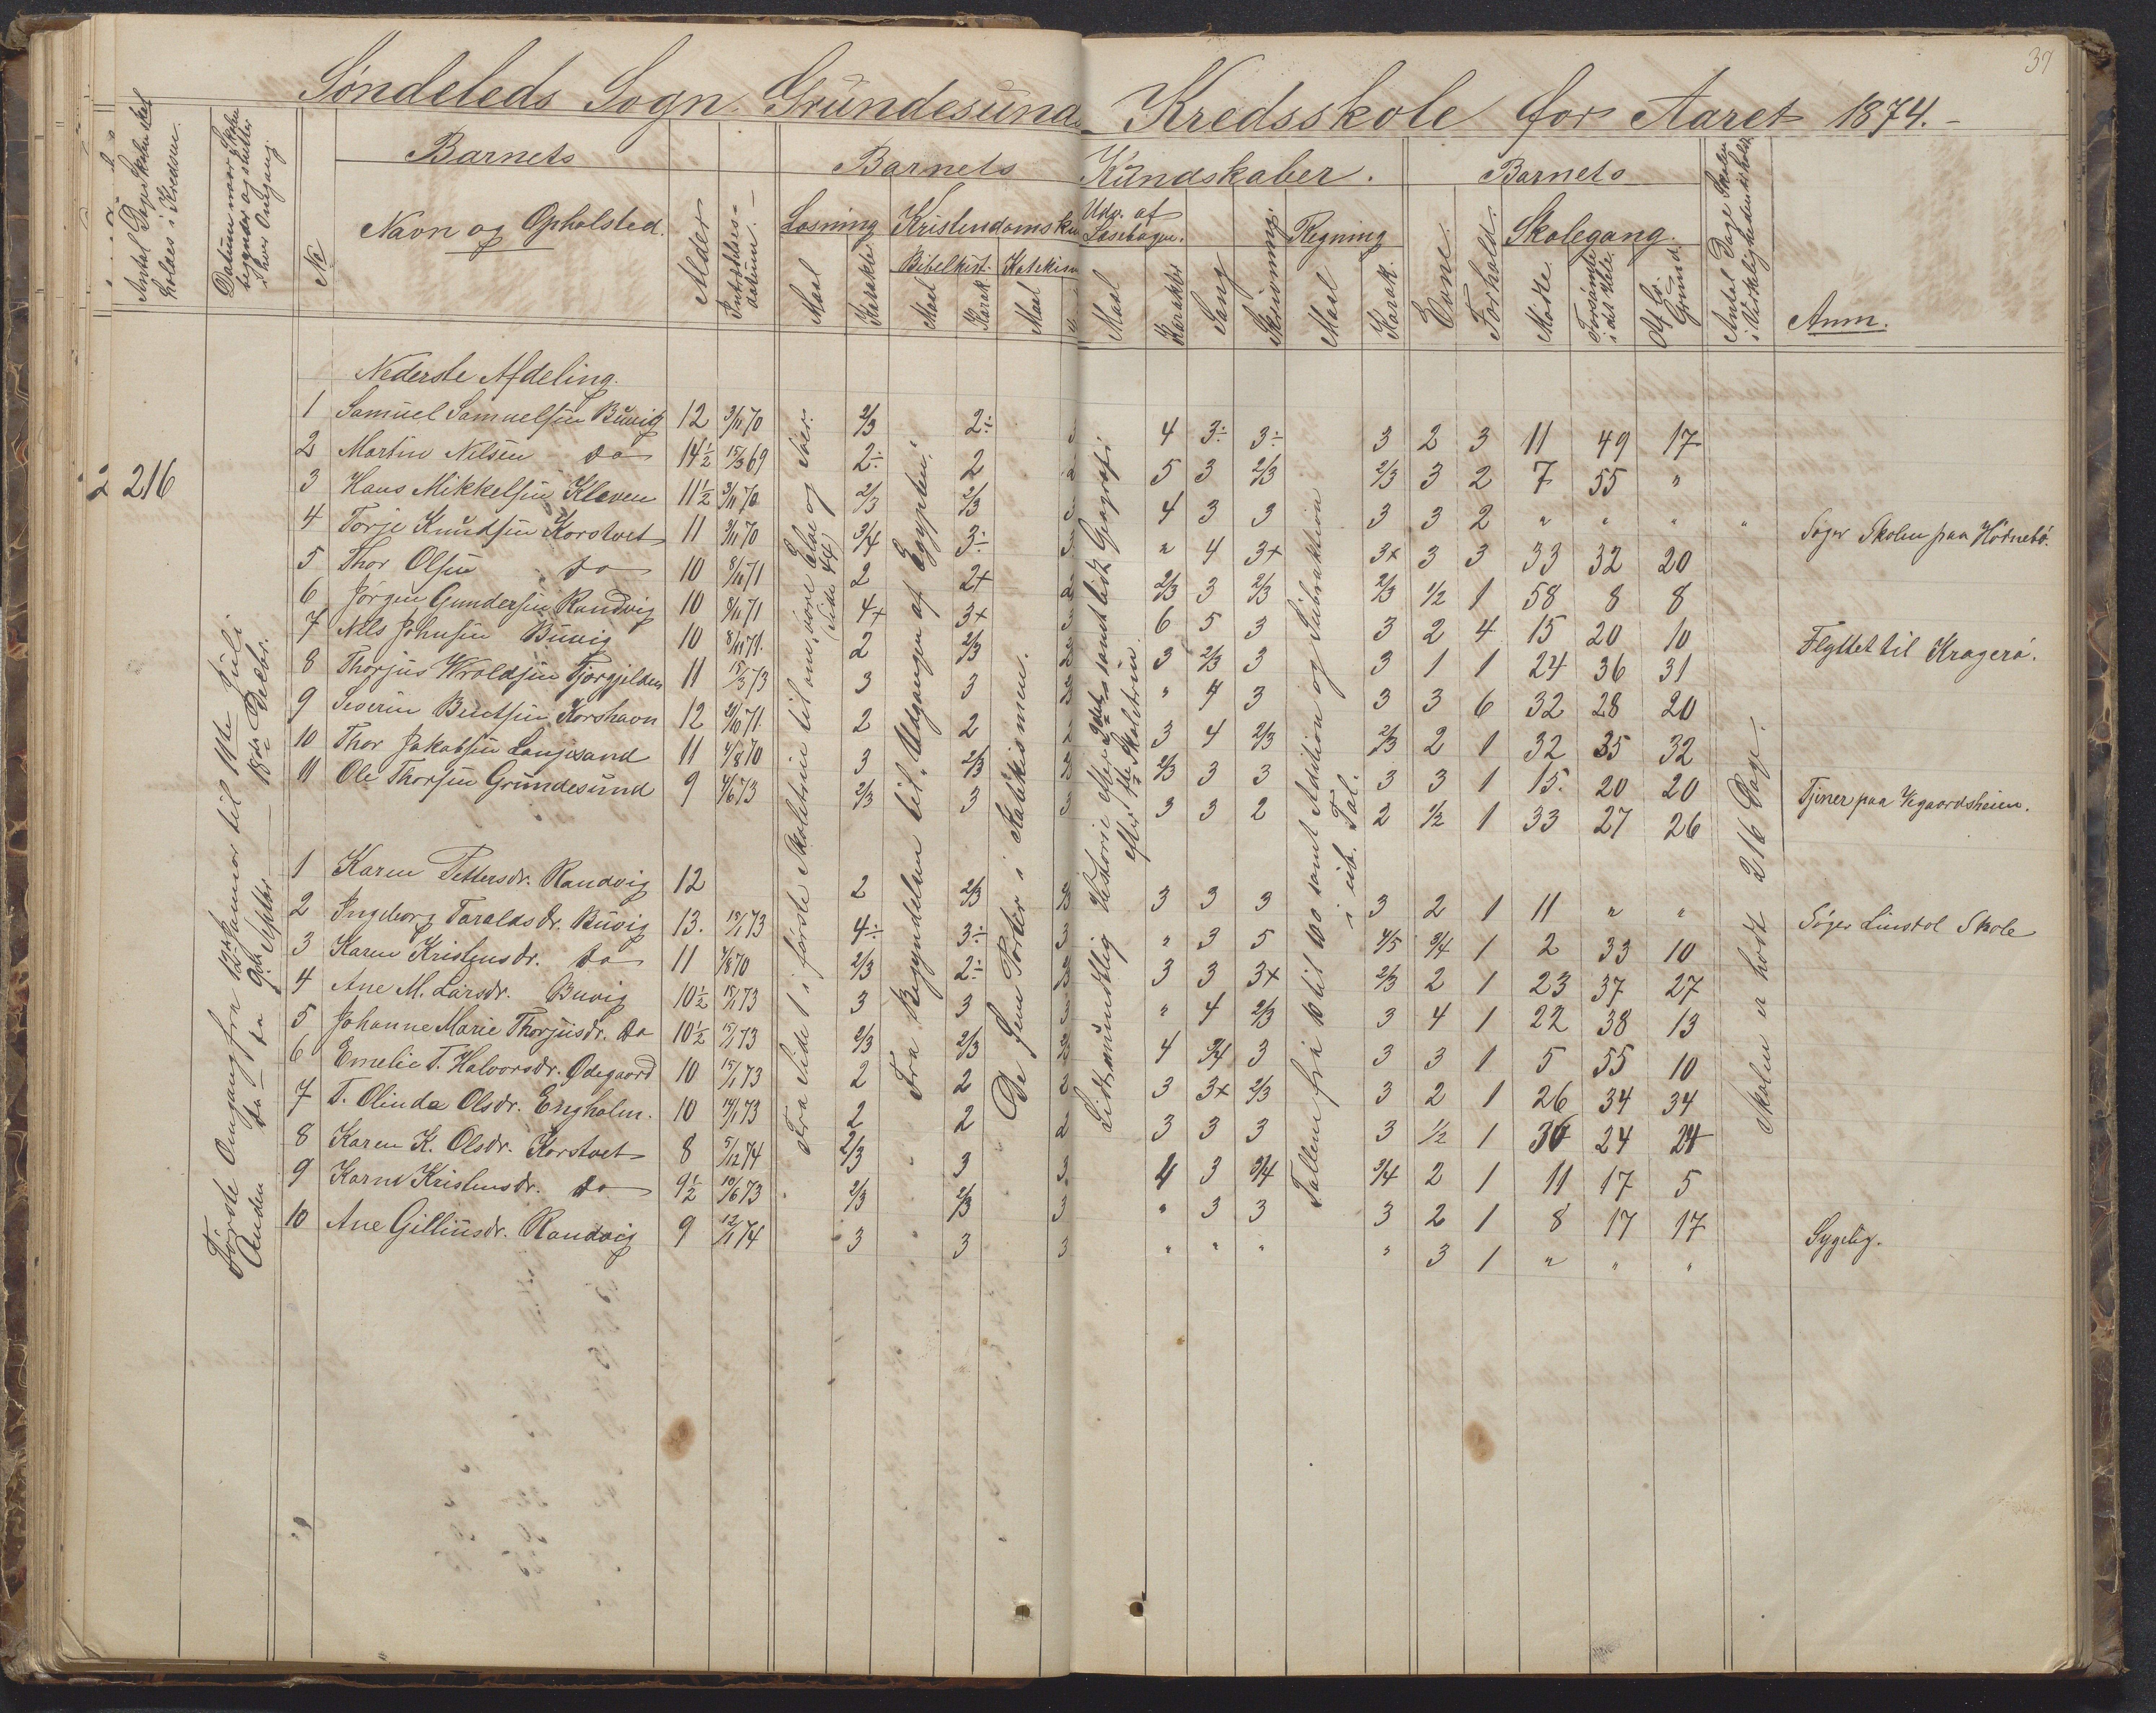 37
Søndeleds Sogn Grundesund Kredsskole for Aaret 1874.
Antal Dage Skolen skal holdes i Kredsen.
Datum naar Skolen begynder og slutter i hver Omgang.
No
Barnets
Navn og Opholsted.
Alder
Indtrædelses-datum.
Barnets Kundskaber.
Læsning
Maal
Karakter
Kristendomskun
Bibelhist.
Maal
Karak.
Katekism
Maal
Udv. af Læsebogen.
Maal
Karakter
Sang
Skrivning.
Regning
Maal
Karak.
Evne.
Forhold.
Barnets
Skolegang.
Mödte.
Forsömte i det Hele.
Af lov. Grund.
Antal Dage Skolen i Virkeligheden er holdt
Anm.
216
Første Omgang fra 12te Januar til 11te Juli
Anden do fra 9de Septbr. 18de Decbr.
Fra Side 1 i første Skoletrin til om, vore Elve og Søer. (Side 44)
Fra Begyndelsen til, Udgangen af Egypten.
De fem Parter i Katekismen.
Lidt mundtlig Historie efter 2det samt lidt Geografi efter 1ste Skoletrin.
Tallene fra 10 til 100 samt Addition og Subtraktion i ub. Tal.
Skolen er holdt 216 Dage.
Nederste Afdeling.
1 Samuel Samuelsen Buvig 12 3/11 70 2/3 2÷ 3 4 3÷ 3÷ 3 2 3 11 49 17
2 Martin Nilsen do 14½ 15/3 69 2÷ 2 2 5 3 2/3 2/3 3 2 7 55 "
3 Hans Mikkelsen Kleven 11½ 3/11 70 2/3 2/3 3 4 3 3 3 3 2 " " " " Søger Skolen paa Hödnebö.
4 Torje Knudsen Korstvet 11 3/11 70 3/4 3÷ 3 " 4 3+ 3+ 3 3 33 32 20
5 Thor Olsen do 10 8/11 71 2 2+ 2 2/3 3 2/3 2/3 1/2 1 58 8 8
6 Jørgen Gundersen Randvig 10 8/11 71 4+ 3+ 3 6 5 3 3 2 4 15 20 10 Flyttet til Kragerø.
7 Nils Johnsen Buvig 10 8/11 71. 2 2/3 2/3 3 2/3 3 3 1 1 24 36 31
8 Thorjus Wroldsen Tjorgjilden 11 15/3 73 3 3 2/3 " 4 3 3 3 6 32 28 20
9 Severin Bentsen Korshavn 12 21/10 71 2 2 2 3 4 2/3 2/3 2 1 32 35 32
10 Thor Jakobsen Langsand 11 4/8 70 3 2/3 2/3 2/3 3 3 3 3 1 15. 20 20 Tjener paa Vegaardsheien.
11 Ole Thorsen Grundesund 9 4/6 73 2/3 3 3 3 3 2 2 1/2 1 33 27 26
1 Karen Pettersdr. Randvig 12 2 2/3 2/3 3 3 3 3 2 1 11 " " Søger Linstøl Skole
2 Ingeborg Taraldsdr. Buvig 13. 15/1 73 4÷ 3÷ 3 " 3 5 4/5 3/4 1 2 33 10
3 Karen Kristensdr. do 11 4/8 70 2/3 2÷ 2/3 3 3 3+ 2/3 2 1 23 37 27
4 Ane M. Larsdr. Buvig 10½ 15/1 73 3 3 3 " 4 2/3 3 4 1 22 38 13
5 Johanne Marie Thorjusdr. do 10½ 15/1 73 2/3 2/3 2/3 4 3/4 3 3 3 1 5 55 10
6 Emelie T. Halvorsdr. Ødegaard 10 15/1 73 2 2 2 3 3+ 2/3 3 2 1 26 34 34
7 T. Olinda Olsdr. Engholm. 10 14/1 73 2 2 2 3 3 3 3 1/2 1 36 24 24
8 Karen K. Olsdr. Korstvet 8 5/12 74 2/3 3 3. 4 3 3/4 3/4 2 1 11 17 5
9 Karne Kristensdr. do 9½ 10/6 73 2/3 2/3 3 " 3 3 3 2 1 8 17 17
10 Ane Gilliusdr. Randvig 9 12/1 74 3 3 3 " " " " 3 1 " " " Sygelig.